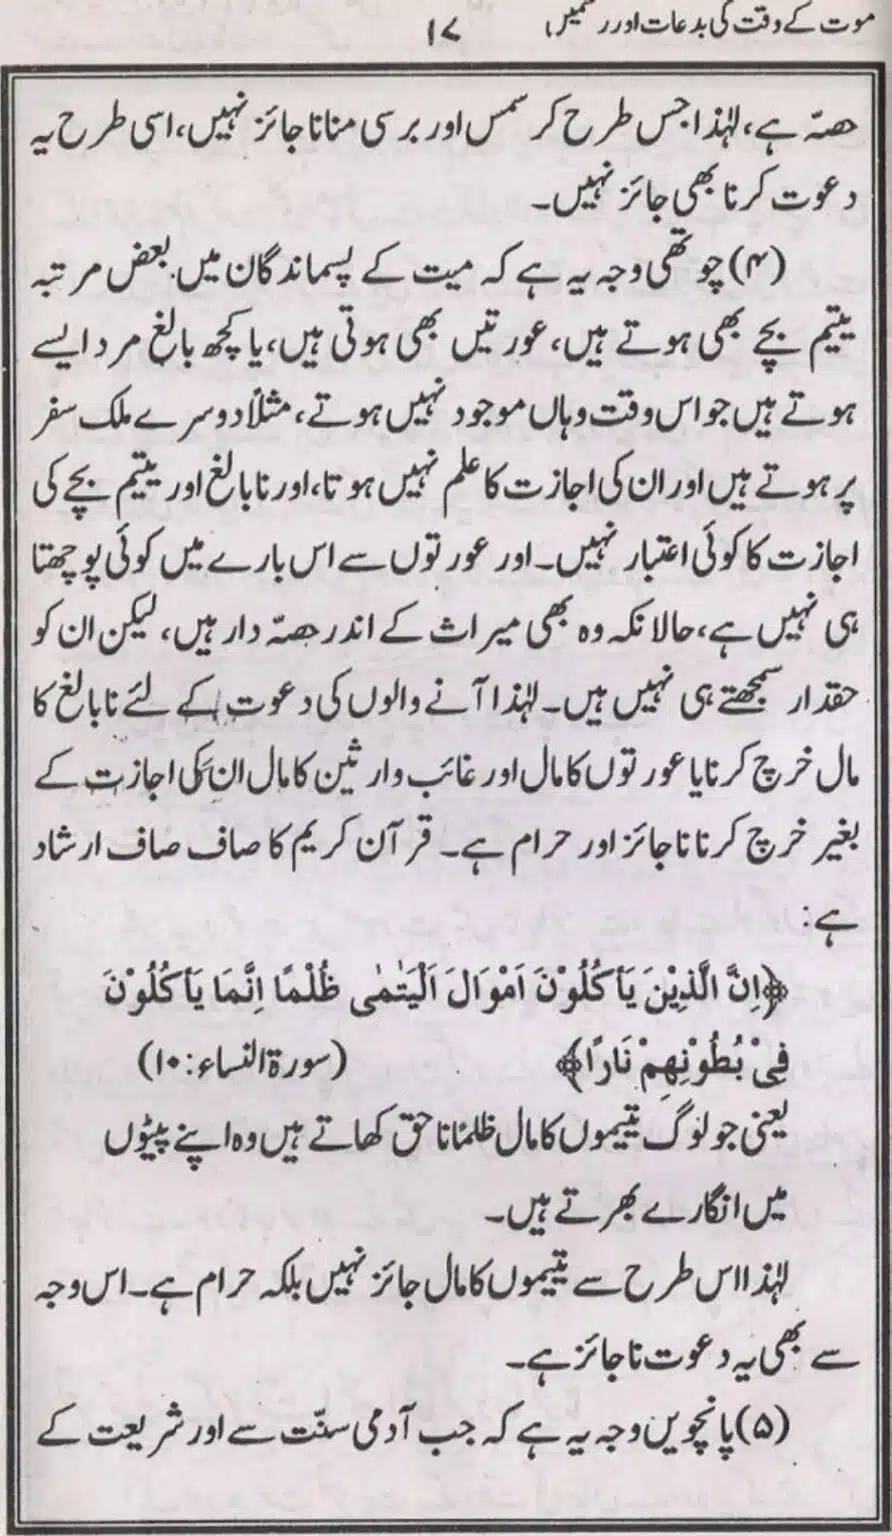 موت کے وقت کی بدعات اور رسمیں
۱۷
حصہ ہے، لہٰذا جس طرح کرسمس اور برسی منانا جائز نہیں، اسی طرح یہ
دعوت کرنا بھی جائز نہیں۔
(۴) چوتھی وجہ یہ ہے کہ میت کے پسماندگان میں بعض مرتبہ
یتیم بچے بھی ہوتے ہیں، عورتیں بھی ہوتی ہیں، یا کچھ بالغ مرد ایسے
ہوتے ہیں جو اس وقت وہاں موجود نہیں ہوتے، مثلاً دوسرے ملک سفر
پر ہوتے ہیں اور ان کی اجازت کا علم نہیں ہوتا، اور نابالغ اور یتیم بچے کی
اجازت کا کوئی اعتبار نہیں۔ اور عورتوں سے اس بارے میں کوئی پوچھتا
ہی نہیں ہے، حالانکہ وہ بھی میراث کے اندر حصہ دار ہیں، لیکن ان کو
حقدار سمجھتے ہی نہیں ہیں۔ لہٰذا آنے والوں کی دعوت کے لئے نابالغ کا
مال خرچ کرنا یا عورتوں کا مال اور غائب وارثین کا مال ان کی اجازت کے
بغیر خرچ کرنا ناجائز اور حرام ہے۔ قرآن کریم کا صاف صاف ارشاد
ہے:
﴿اِنَّ الَّذِیْنَ یَأْکُلُوْنَ اَمْوَالَ الْیَتٰمٰی ظُلْمًا اِنَّمَا یَأْکُلُوْنَ
فِیْ بُطُوْنِهِمْ نَارًا﴾ (سورۃ النساء: ۱۰)
یعنی جو لوگ یتیموں کا مال ظلماً ناحق کھاتے ہیں وہ اپنے پیٹوں
میں انگارے بھرتے ہیں۔
لہٰذا اس طرح سے یتیموں کا مال جائز نہیں بلکہ حرام ہے۔ اس وجہ
سے بھی یہ دعوت ناجائز ہے۔
(۵) پانچویں وجہ یہ ہے کہ جب آدمی سنّت سے اور شریعت کے